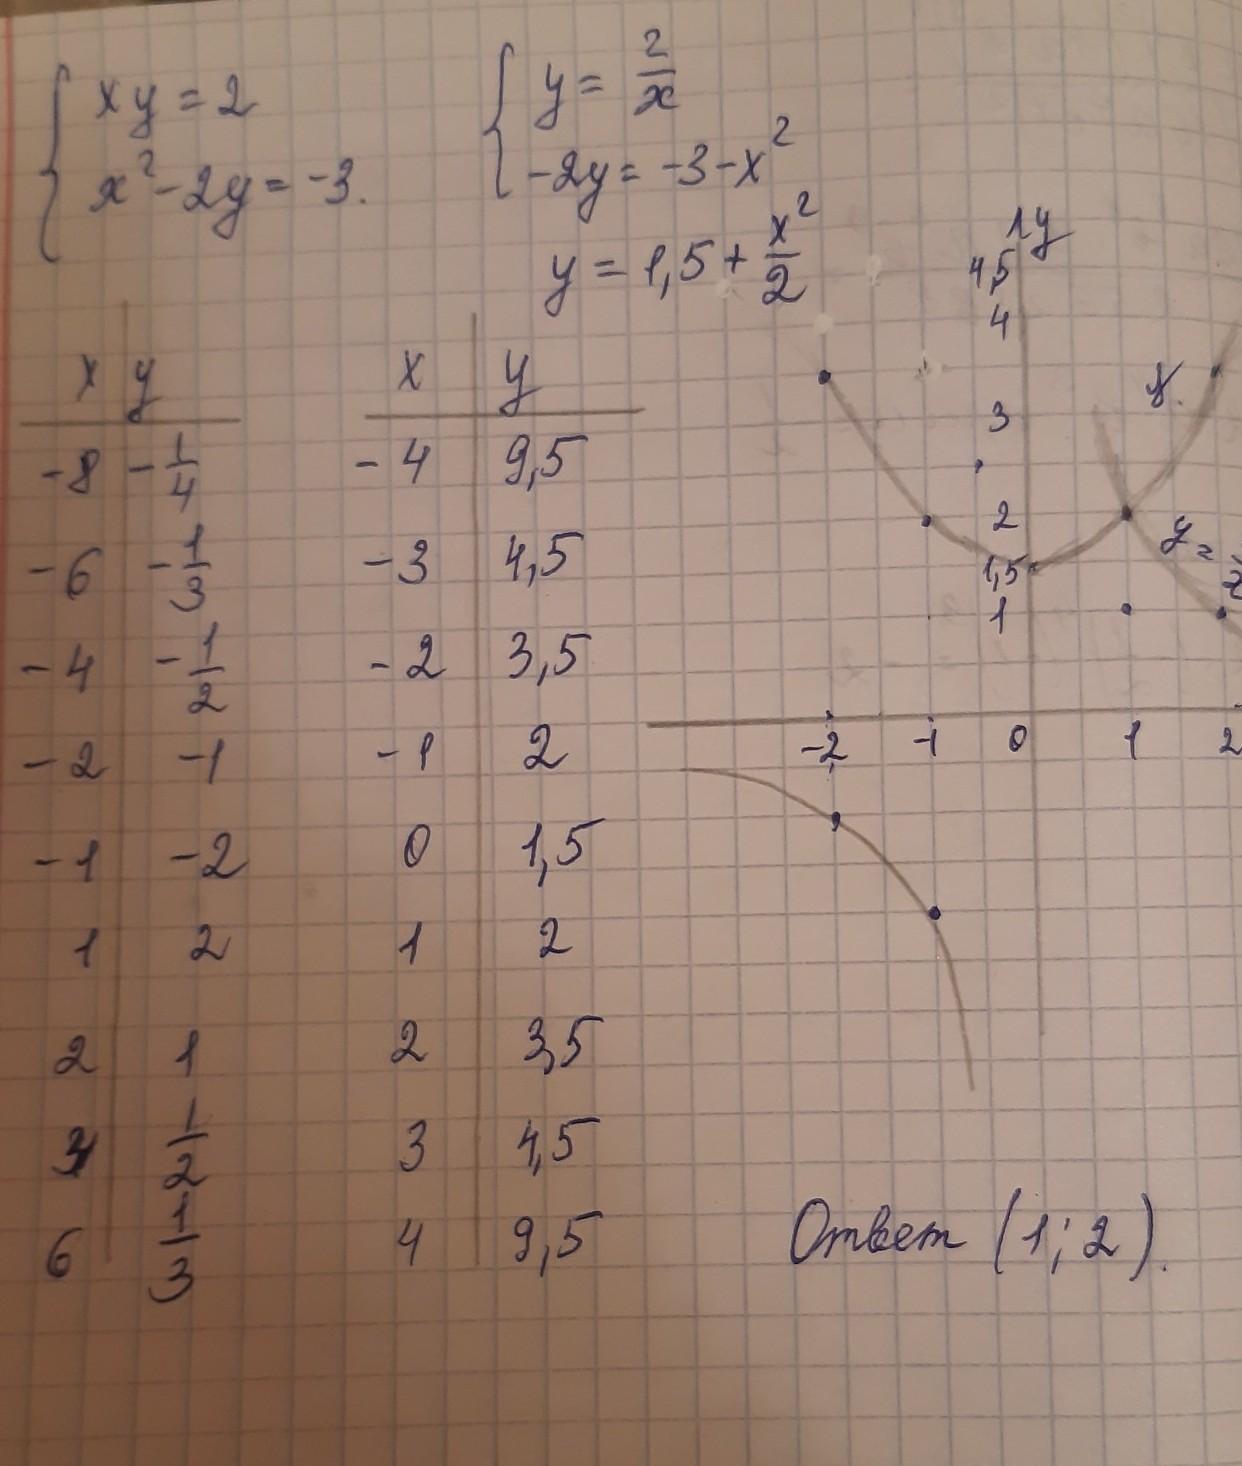 { xy = 2
x² - 2y = -3.
{ y = 2/x
-2y = -3 - x²
y = 1,5 + x²/2
x y
-8 -1/4
-6 -1/3
-4 -1/2
-2 -1
-1 -2
1 2
2 1
1/2
6 1/3
x y
-4 9,5
-3 4,5
-2 3,5
-1 2
0 1,5
1 2
2 3,5
3 4,5
4 9,5
y
4,5
4
3
2
1,5
1
-2 -1 0 1 2
y =
Ответ (1; 2).